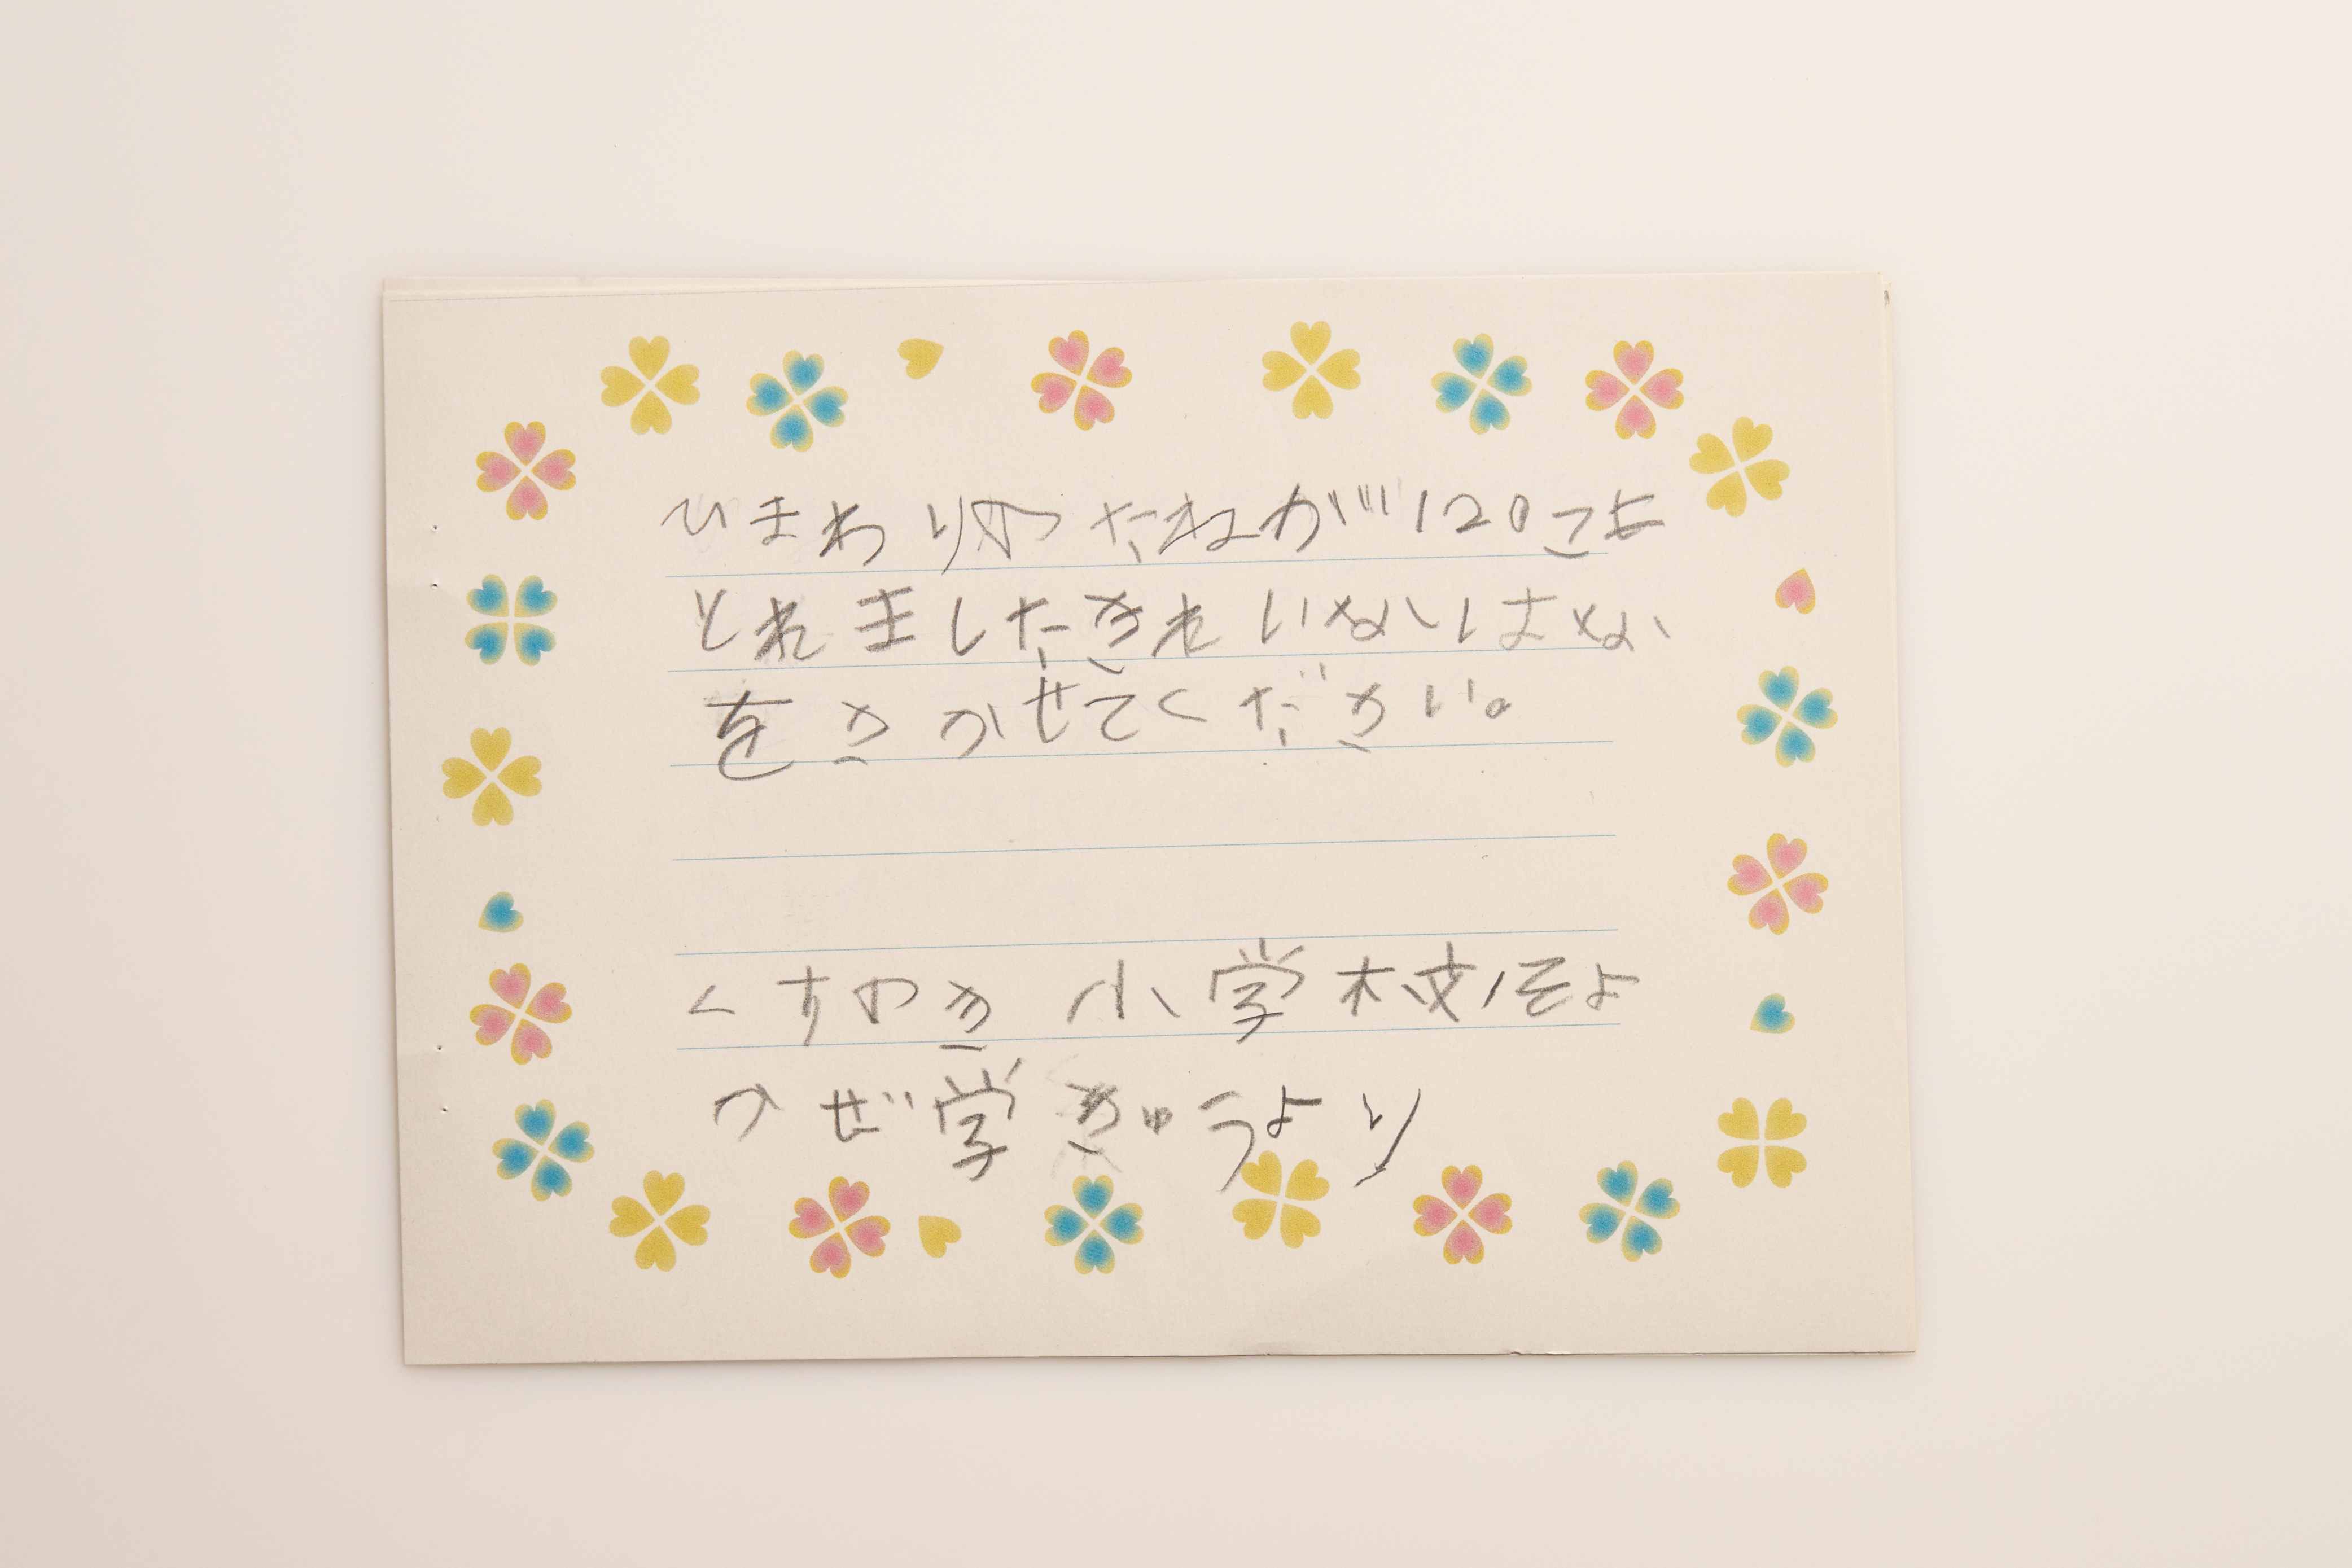 ひまわりのたねが120こも
とれましたきれいなはな
をさかせてください。
くすのき小学校そよ
かぜ学きゅうより